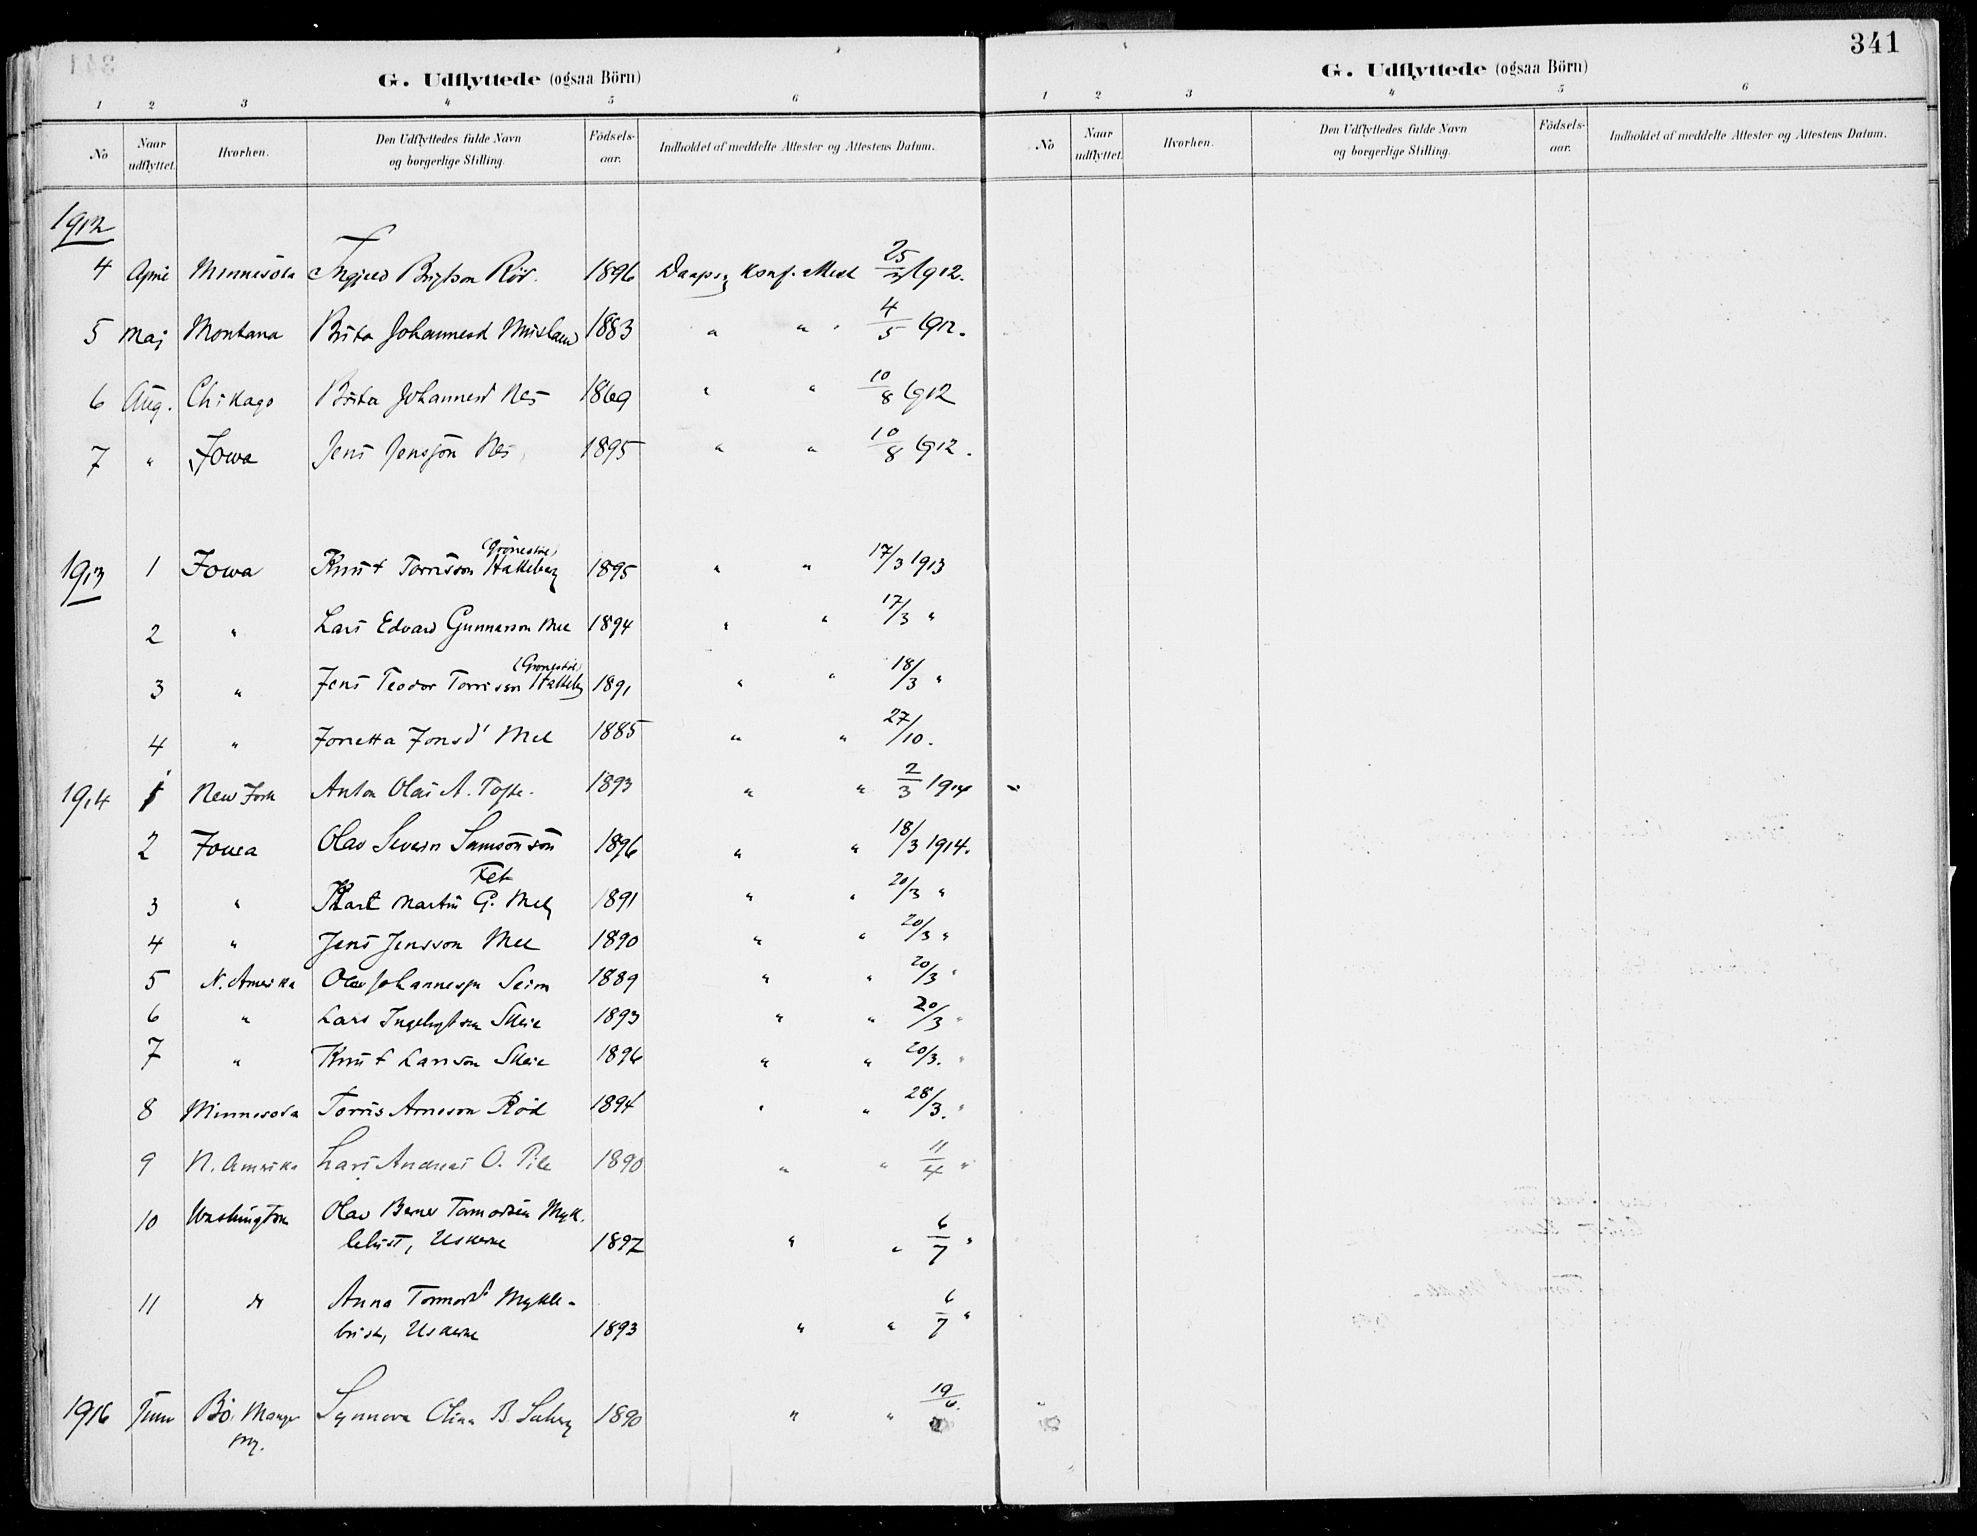 341
G. Udflyttede (ogsaa Börn)
1 2 3 4 5 6
No Naar udflyttet. Hvorhen. Den Udflyttedes fulde Navn og borgerlige Stilling. Födsels-aar. Indholdet af meddelte Attester og Attestens Datum.
1912
4 April Minnesota Ingjerd 1896 Daaps og Konf. attest 25/3 1912.
5 Maj Montana Brita Johannesd 1883 " " 4/5 1912.
6 Aug. Chikago Brita Johannesd Nes 1869 " " 10/8 1912
7 " Iowa Jens Jensson Nes 1895 " " 10/8 1912.
(Grönestöl)
1913 1 Iowa Knut Torrisson Halleberg 1895 " " 17/3 1913
2 " Lars Edvard Gunnarson Mel 1894 " " 17/3 "
(Grönestöl)
3 " Jens Teodor Torrison 1891 " " 18/3 "
4 " Jonetta Jonsd Mel 1885 " " 27/10.
1914 1 New York Anton Olai A. Tofte. 1893 " " 2/3 1914
2 Iowa Olav Severin Samsonson 1896 " " 18/3 1914.
Fet
3 " Karl Martin G. Mel 1891 " " 20/3 "
4 " Jens Jensson Mel 1890 " " 20/3 "
5 N. Amerika Olav Johannessen Seim 1889 " " 20/3 "
6 " Lars Skeie 1893 " " 20/3 "
7 " Knut Larsson Skeie 1896 " " 20/3. "
8 Minnesota Torris Arneson Röd 1894 " " 28/3. "
9 N. Amerika Lars Andreas O. 1890 " " 11/4 "
10 Washington Olav Berner Tormodsen Myk-
lebust, Uskerne 1897 " " 6/7 "
11 do Anna Tormodsd Mykle-
bust, Uskerne 1893 " " 6/7 "
1916 Juni Bö, Manger Synneva Olina B 1890 " " 19/6.
prg.
G. Udflyttede (ogsaa Börn)
1 2 3 4 5 6
No Naar udflyttet. Hvorhen. Den Udflyttedes fulde Navn og borgerlige Stilling. Födsels-aar. Indholdet af meddelte Attester og Attestens Datum.